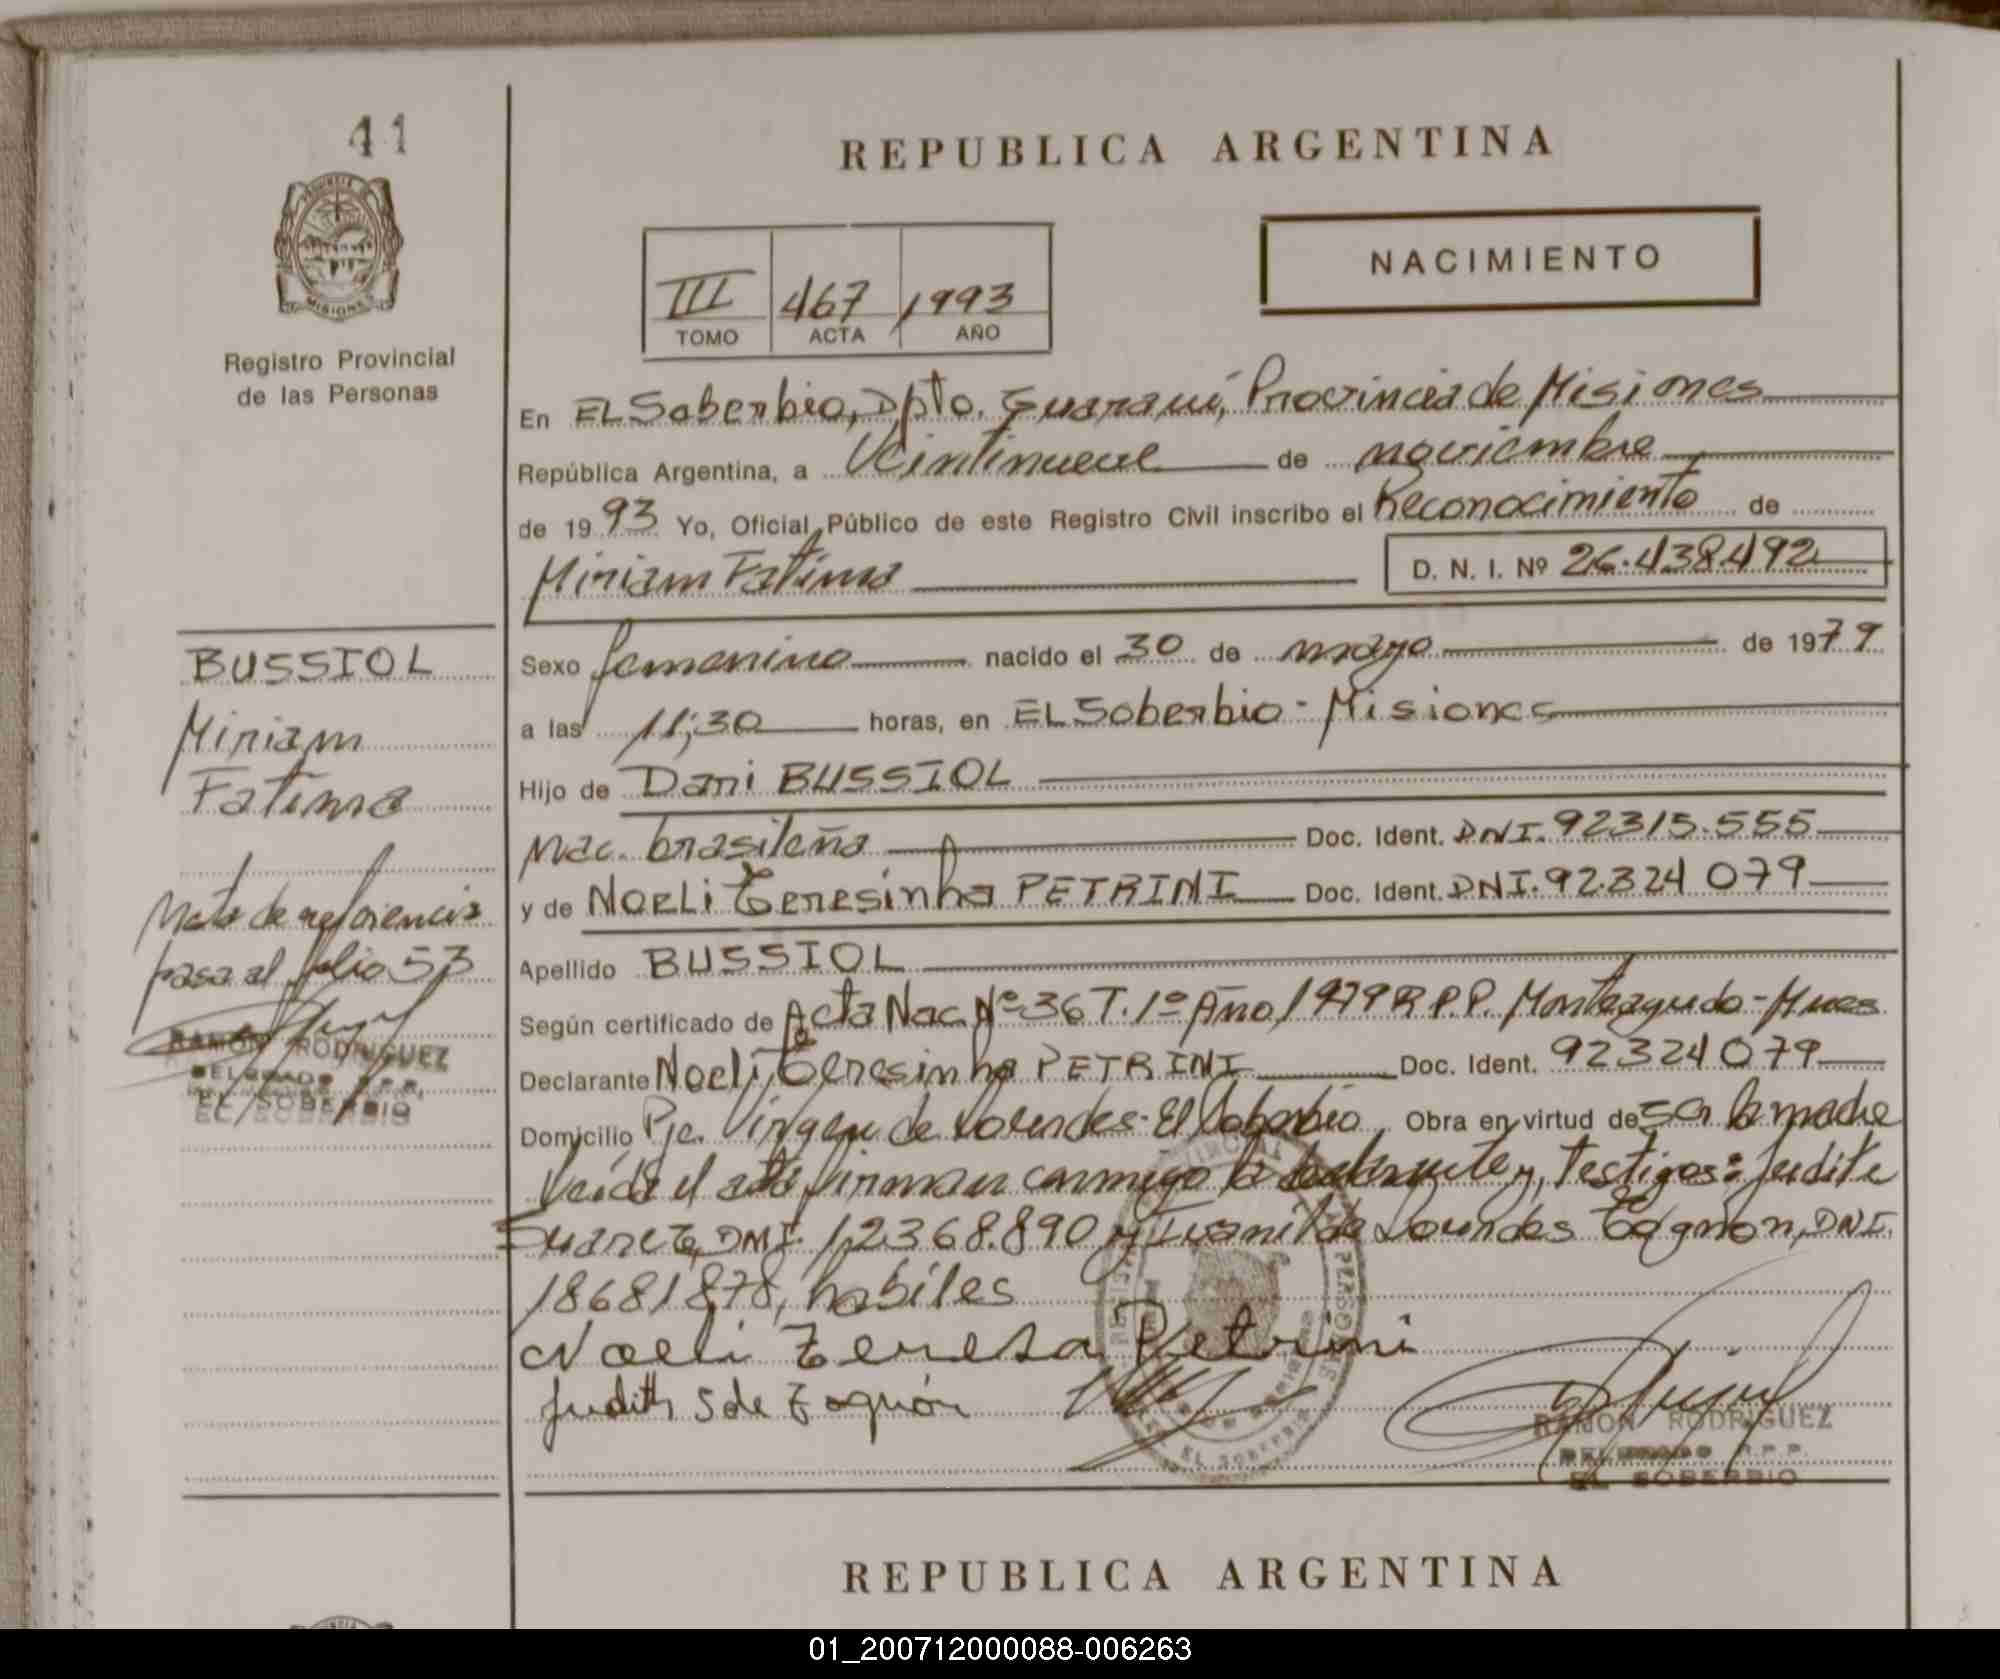 41
PROVINCIA DE
MISIONES
Registro Provincial
de las Personas
REPUBLICA ARGENTINA
III 467 1993
TOMO ACTA AÑO
NACIMIENTO
En EL Soberbio, Dpto. Guaraní, Provincia de Misiones
República Argentina, a Veintinueve de noviembre
de 1993 Yo, Oficial Público de este Registro Civil inscribo el Reconocimiento de
Miriam Fatima D. N. I. Nº 26.438.492
Sexo femenino nacido el 30 de mayo de 1979
a las 11;30 horas, en EL Soberbio - Misiones
Hijo de Dani BUSSIOL
Nac. brasileña Doc. Ident. DNI. 92315.555
y de NOELI Teresinha PETRINI Doc. Ident. DNI. 92.324 079
Apellido BUSSIOL
Según certificado de Acta Nac. Nº 36 T. 1º Año 1979 R.P.P. Monteagudo - Mnes
Declarante Noeli Teresinha PETRINI Doc. Ident. 92324079
Domicilio Pje. Virgen de Lourdes - El Soberbio Obra en virtud de ser la madre
Leída el acta firman conmigo la declarante y, testigos: Judite
Suarez, DNI. 12.368.890 y Lourdes DNI.
18681878, habiles
Noeli Teresa Petrini
Judith S de
RAMON RODRIGUEZ
DELEGADO R.P.P.
EL SOBERBIO
EL SOBERBIO
BUSSIOL
Miriam
Fatima
Nota de referencia
pasa al folio 53
RAMON RODRIGUEZ
DELEGADO R.P.P.
EL SOBERBIO
REPUBLICA ARGENTINA
01_200712000088-006263